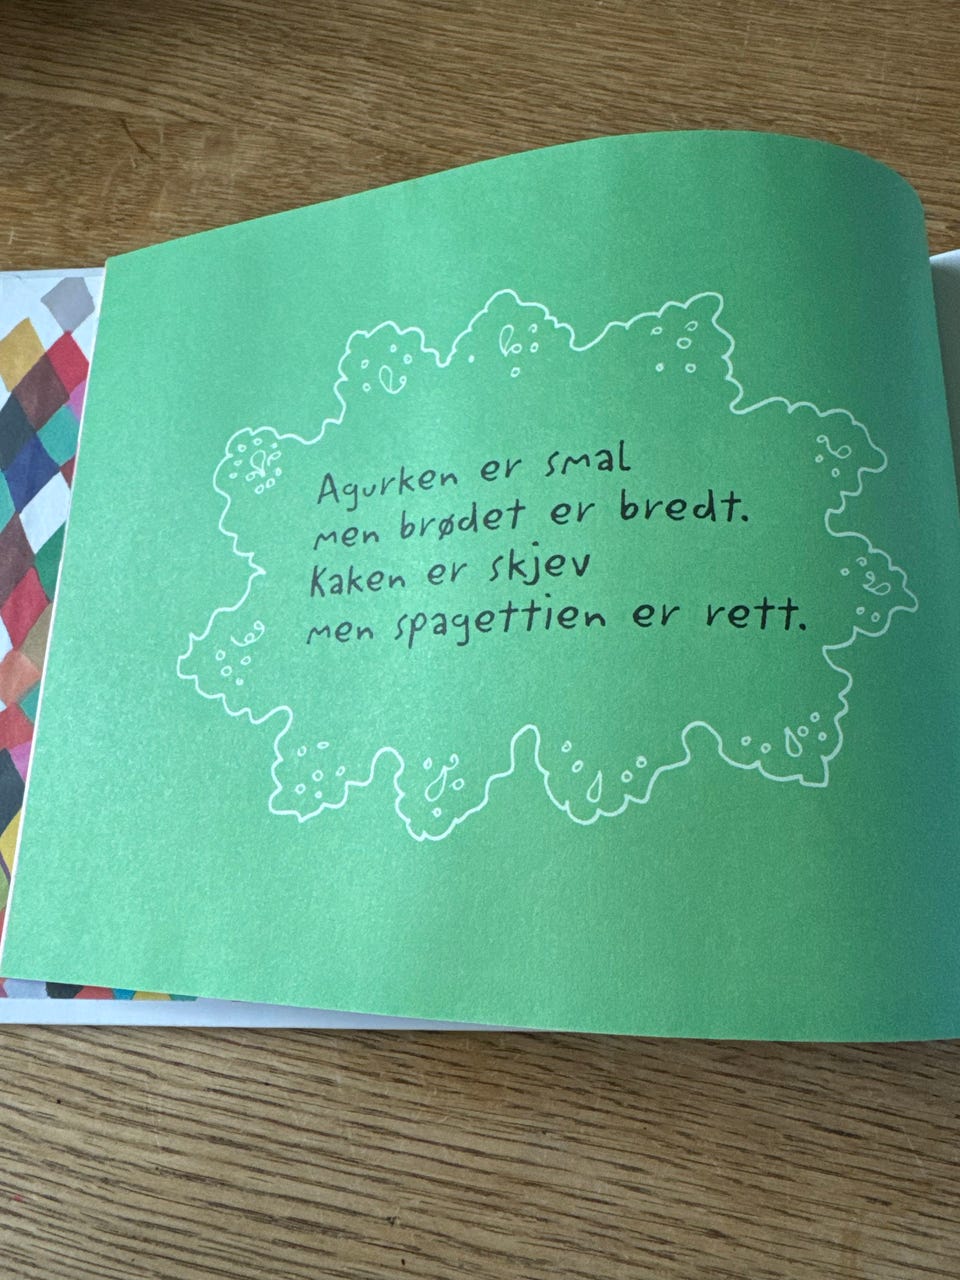 Agurken er smal
men brødet er bredt.
Kaken er skjev
men spagettien er rett.